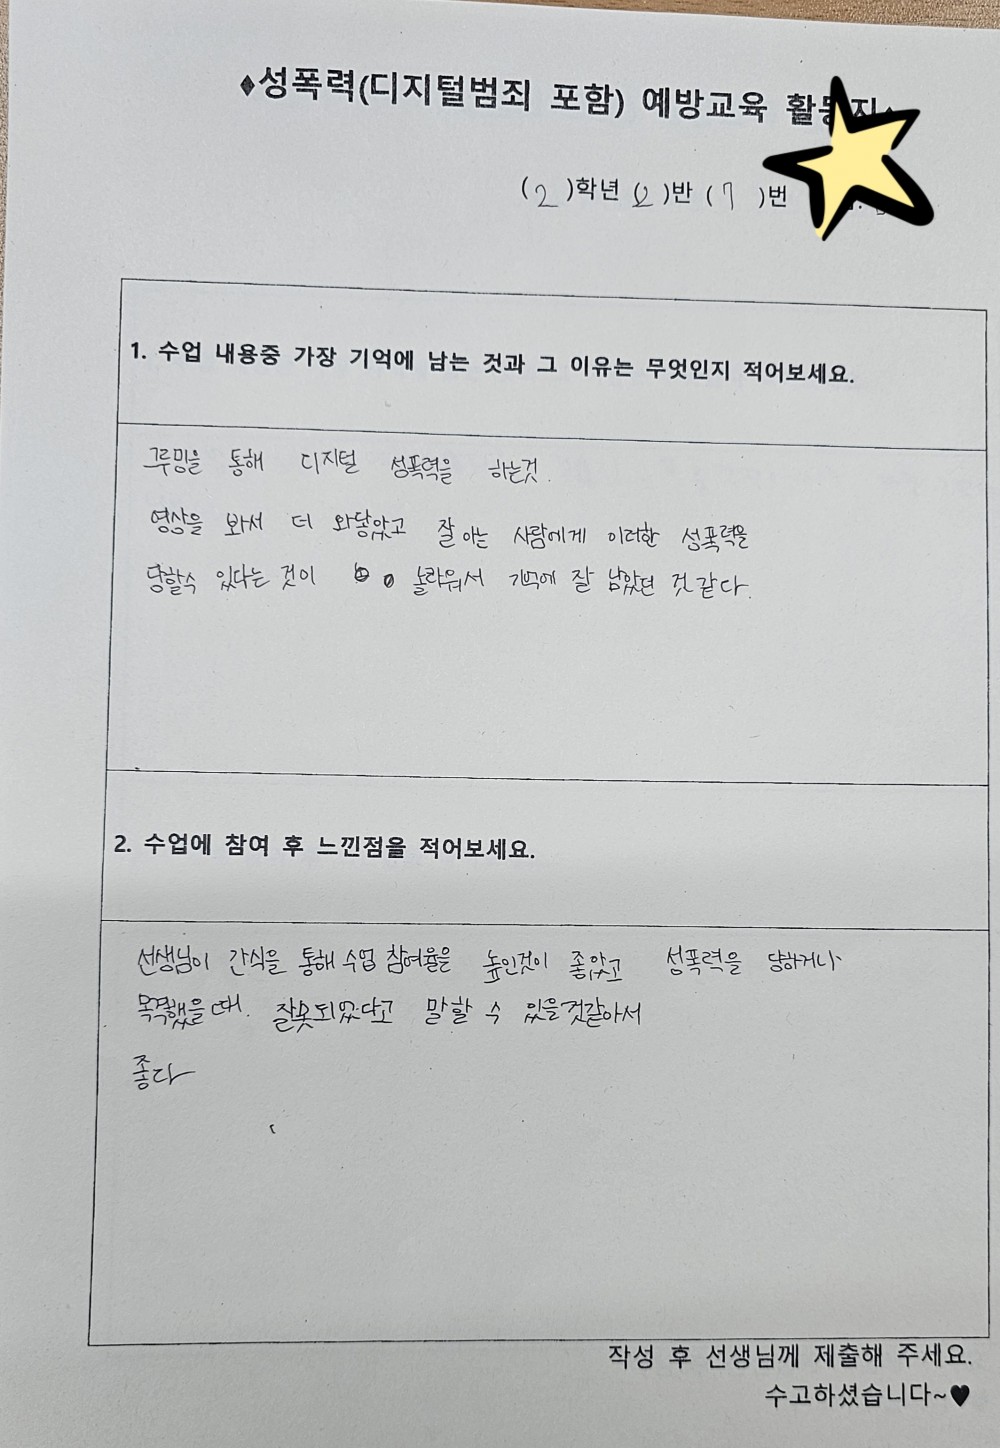 ♦성폭력(디지털범죄 포함) 예방교육
(2)학년 (2)반 (7 )번
1. 수업 내용중 가장 기억에 남는 것과 그 이유는 무엇인지 적어보세요.
그루밍을 통해 디지털 성폭력을 하는것.
영상을 봐서 더 와닿았고 잘 아는 사람에게 이러한 성폭력을
당할수 있다는 것이 놀라워서 기억에 잘 남았던 것 같다.
2. 수업에 참여 후 느낀점을 적어보세요.
선생님이 간식을 통해 수업 참여율을 높인것이 좋았고 성폭력을 당하거나
목격했을 때. 잘못되었다고 말할 수 있을것같아서
좋다
작성 후 선생님께 제출해 주세요.
수고하셨습니다~♥